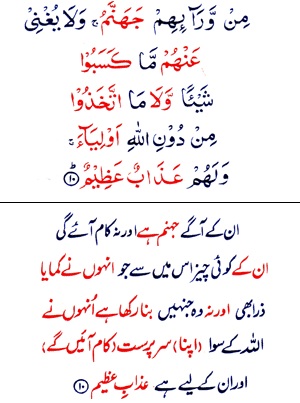 مِنْ وَّرَآىِٕهِمْ جَهَنَّمُ ۚ وَلَا يُغْنِيْ
عَنْهُمْ مَّا كَسَبُوْا
شَيْـًٔا وَّلَا مَا اتَّخَذُوْا
مِنْ دُوْنِ اللّٰهِ اَوْلِيَآءَ ۚ
وَلَهُمْ عَذَابٌ عَظِيْمٌ ۝۱۰
ان کے آگے جہنم ہے اور نہ کام آئے گی
ان کے کوئی چیز اس میں سے جو انہوں نے کمایا
ذرا بھی اور نہ وہ جنہیں بنا رکھا ہے اُنہوں نے
اللہ کے سوا (اپنا) سرپرست (کام آئیں گے)
اور ان کے لیے ہے عذابِ عظیم ۝۱۰